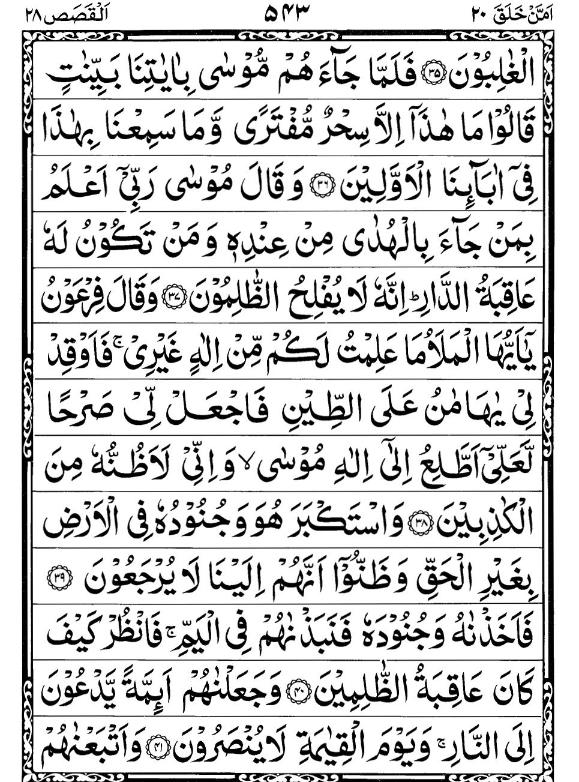 اَمَّنْ خَلَقَ ٢٠ ٥٤٣ اَلْقَصَص ٢٨
الْغٰلِبُوْنَ ﴿٣٥﴾ فَلَمَّا جَآءَ هُمْ مُّوْسٰى بِاٰيٰتِنَا بَيِّنٰتٍ
قَالُوْا مَا هٰذَآ اِلَّا سِحْرٌ مُّفْتَرًى وَّمَا سَمِعْنَا بِهٰذَا
فِيْٓ اٰبَآئِنَا الْاَوَّلِيْنَ ﴿٣٦﴾ وَقَالَ مُوْسٰى رَبِّيْٓ اَعْلَمُ
بِمَنْ جَآءَ بِالْهُدٰى مِنْ عِنْدِهٖ وَمَنْ تَكُوْنُ لَهٗ
عَاقِبَةُ الدَّارِ ؕ اِنَّهٗ لَا يُفْلِحُ الظّٰلِمُوْنَ ﴿٣٧﴾ وَقَالَ فِرْعَوْنُ
يٰٓاَيُّهَا الْمَلَاُ مَا عَلِمْتُ لَكُمْ مِّنْ اِلٰهٍ غَيْرِيْ ۚ فَاَوْقِدْ
لِيْ يٰهَامٰنُ عَلَى الطِّيْنِ فَاجْعَلْ لِّيْ صَرْحًا
لَّعَلِّيْٓ اَطَّلِعُ اِلٰٓى اِلٰهِ مُوْسٰى ۙ وَاِنِّيْ لَاَظُنُّهٗ مِنَ
الْكٰذِبِيْنَ ﴿٣٨﴾ وَاسْتَكْبَرَ هُوَ وَجُنُوْدُهٗ فِى الْاَرْضِ
بِغَيْرِ الْحَقِّ وَظَنُّوْٓا اَنَّهُمْ اِلَيْنَا لَا يُرْجَعُوْنَ ﴿٣٩﴾
فَاَخَذْنٰهُ وَجُنُوْدَهٗ فَنَبَذْنٰهُمْ فِى الْيَمِّ ۚ فَانْظُرْ كَيْفَ
كَانَ عَاقِبَةُ الظّٰلِمِيْنَ ﴿٤٠﴾ وَجَعَلْنٰهُمْ اَئِمَّةً يَّدْعُوْنَ
اِلَى النَّارِ ۚ وَيَوْمَ الْقِيٰمَةِ لَا يُنْصَرُوْنَ ﴿٤١﴾ وَاَتْبَعْنٰهُمْ